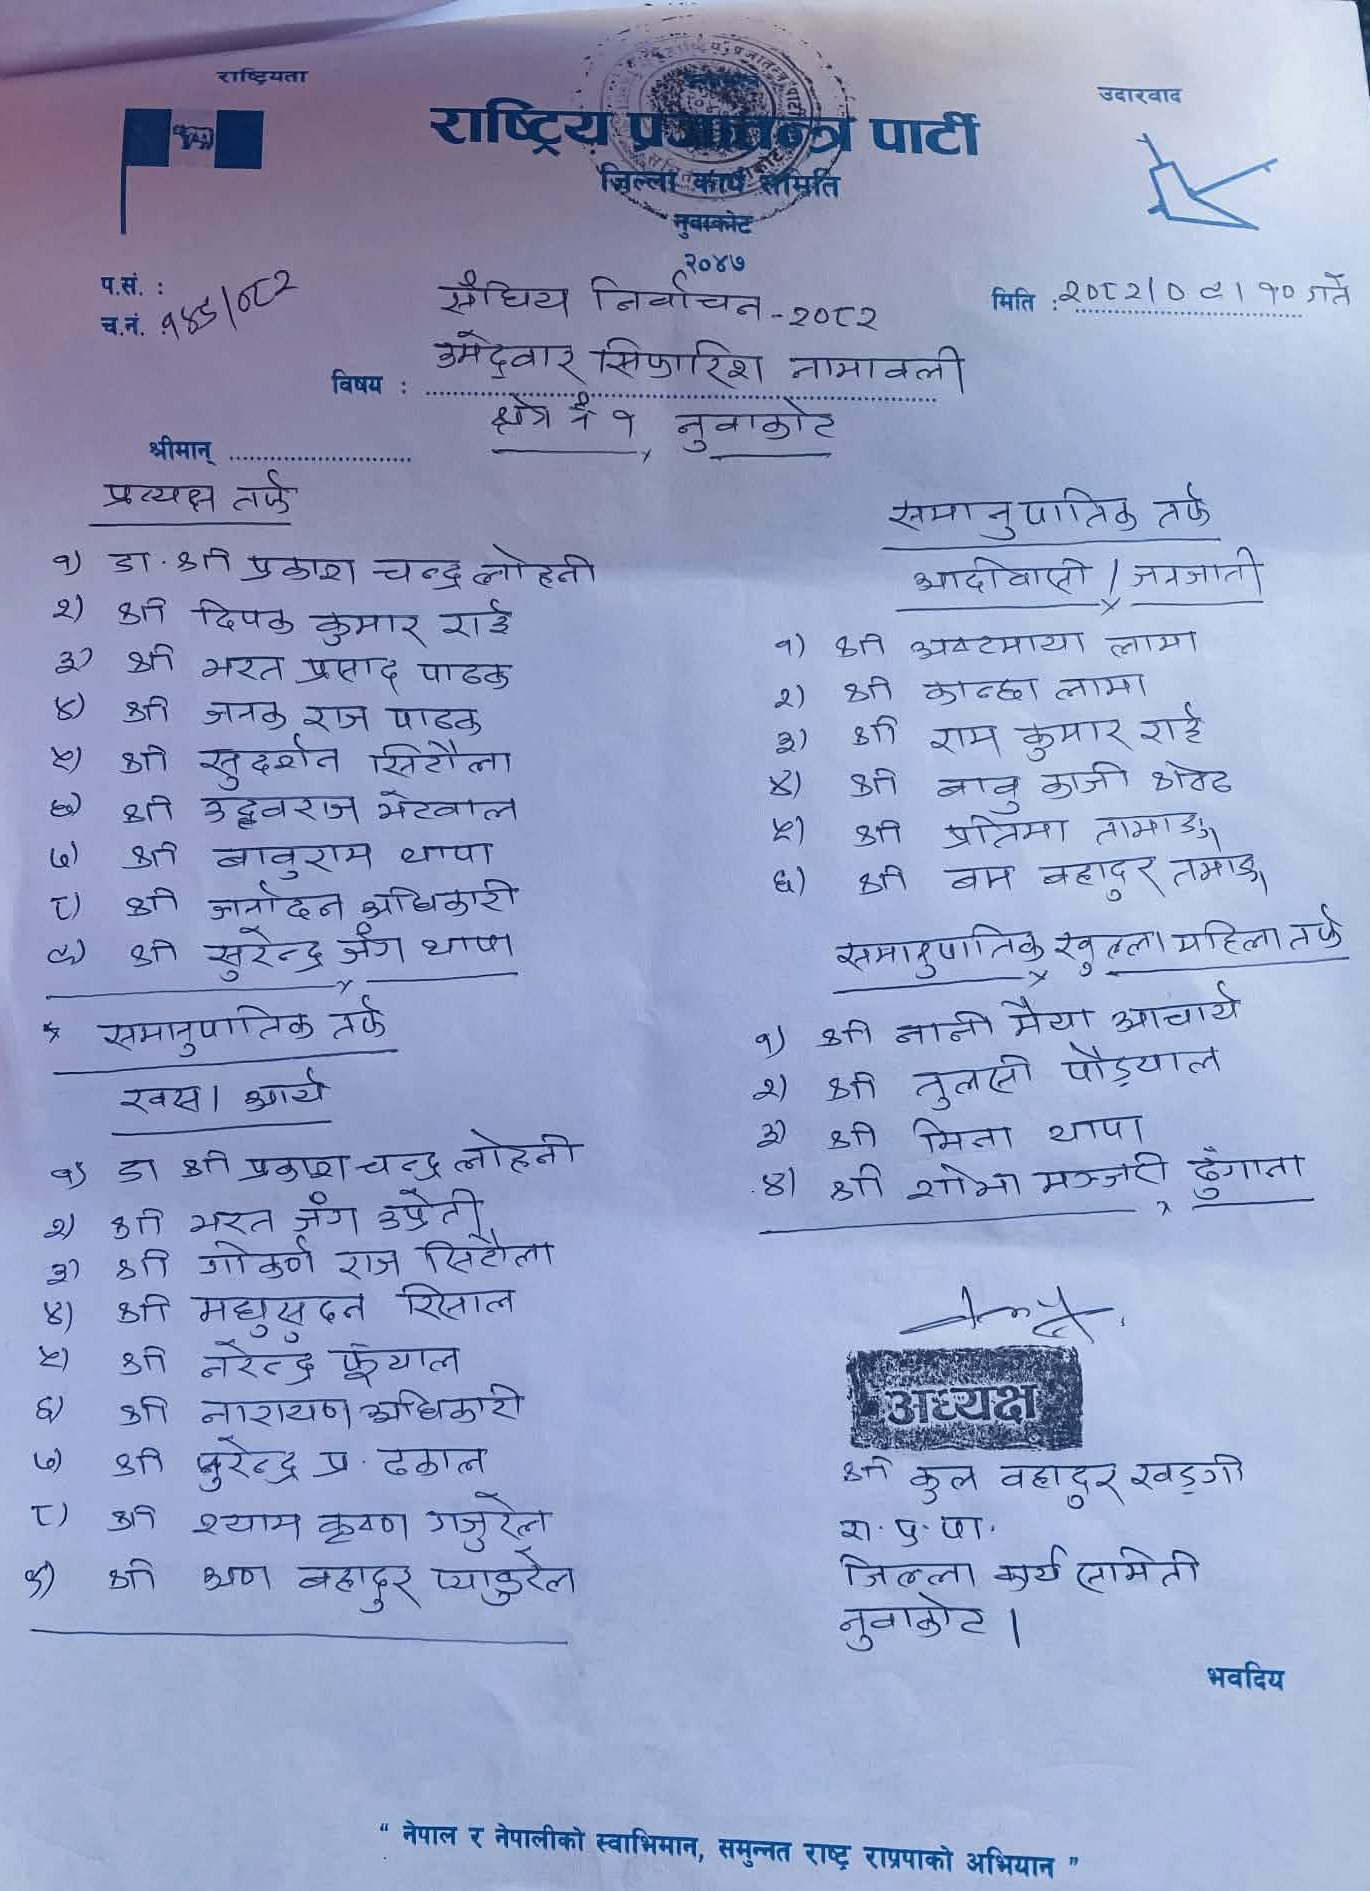 राष्ट्रियता
उदारवाद
राष्ट्रिय प्रजातन्त्र पार्टी
जिल्ला कार्य समिति
नुवाकोट
२०४७
प.सं. :
च.नं. १४५/०८२
मिति : २०८२/०९/१० गते
संघिय निर्वाचन-२०८२
विषय : उमेद्वार सिफारिश नामावली
क्षेत्र नं १ नुवाकोट
श्रीमान्
प्रत्यक्ष तर्फ
१) डा. श्री प्रकाश चन्द्र लोहनी
२) श्री दिपक कुमार राई
३) श्री भरत प्रसाद पाठक
४) श्री जनक राज पाठक
५) श्री सुदर्शन सिटौला
६) श्री उद्धवराज भेटवाल
७) श्री बाबुराम थापा
८) श्री जर्नादन अधिकारी
९) श्री सुरेन्द्र जंग थापा
* समानुपातिक तर्फ
खस। आर्य
१) डा श्री प्रकाश चन्द्र लोहनी
२) श्री भरत जंग उप्रेती
३) श्री गोकर्ण राज सिटौला
४) श्री मधुसुदन रिसाल
५) श्री नरेन्द्र फुँयाल
६) श्री नारायण अधिकारी
७) श्री सुरेन्द्र प्र. ढकाल
८) श्री श्याम कृष्ण गजुरेल
९) श्री बहादुर प्याकुरेल
समानुपातिक तर्फ
आदीवासी / जनजाती
१) श्री अष्टमाया लामा
२) श्री कान्छा लामा
३) श्री राम कुमार राई
४) श्री बाबु काजी श्रेष्ठ
५) श्री प्रतिमा तामाङ
६) श्री बम बहादुर तमाङ
समानुपातिक खुल्ला महिला तर्फ
१) श्री नानी मैया आचार्य
२) श्री तुलसी पौड्याल
३) श्री मिना थापा
४) श्री शोभा मञ्जरी ढुंगाना
अध्यक्ष
श्री कुल बहादुर खड्गी
रा. प्र. पा.
जिल्ला कार्य समिती
नुवाकोट ।
भवदिय
“ नेपाल र नेपालीको स्वाभिमान, समुन्नत राष्ट्र राप्रपाको अभियान ”